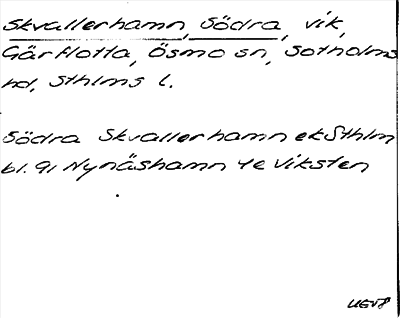 Skvallerhamn, Södra, vik,
Gårflotta, Ösmo sn, Sotholms
hd, Sthlms l.
Södra Skvallerhamn ek Sthlm
bl. 91 Nynäshamn 4e Viksten